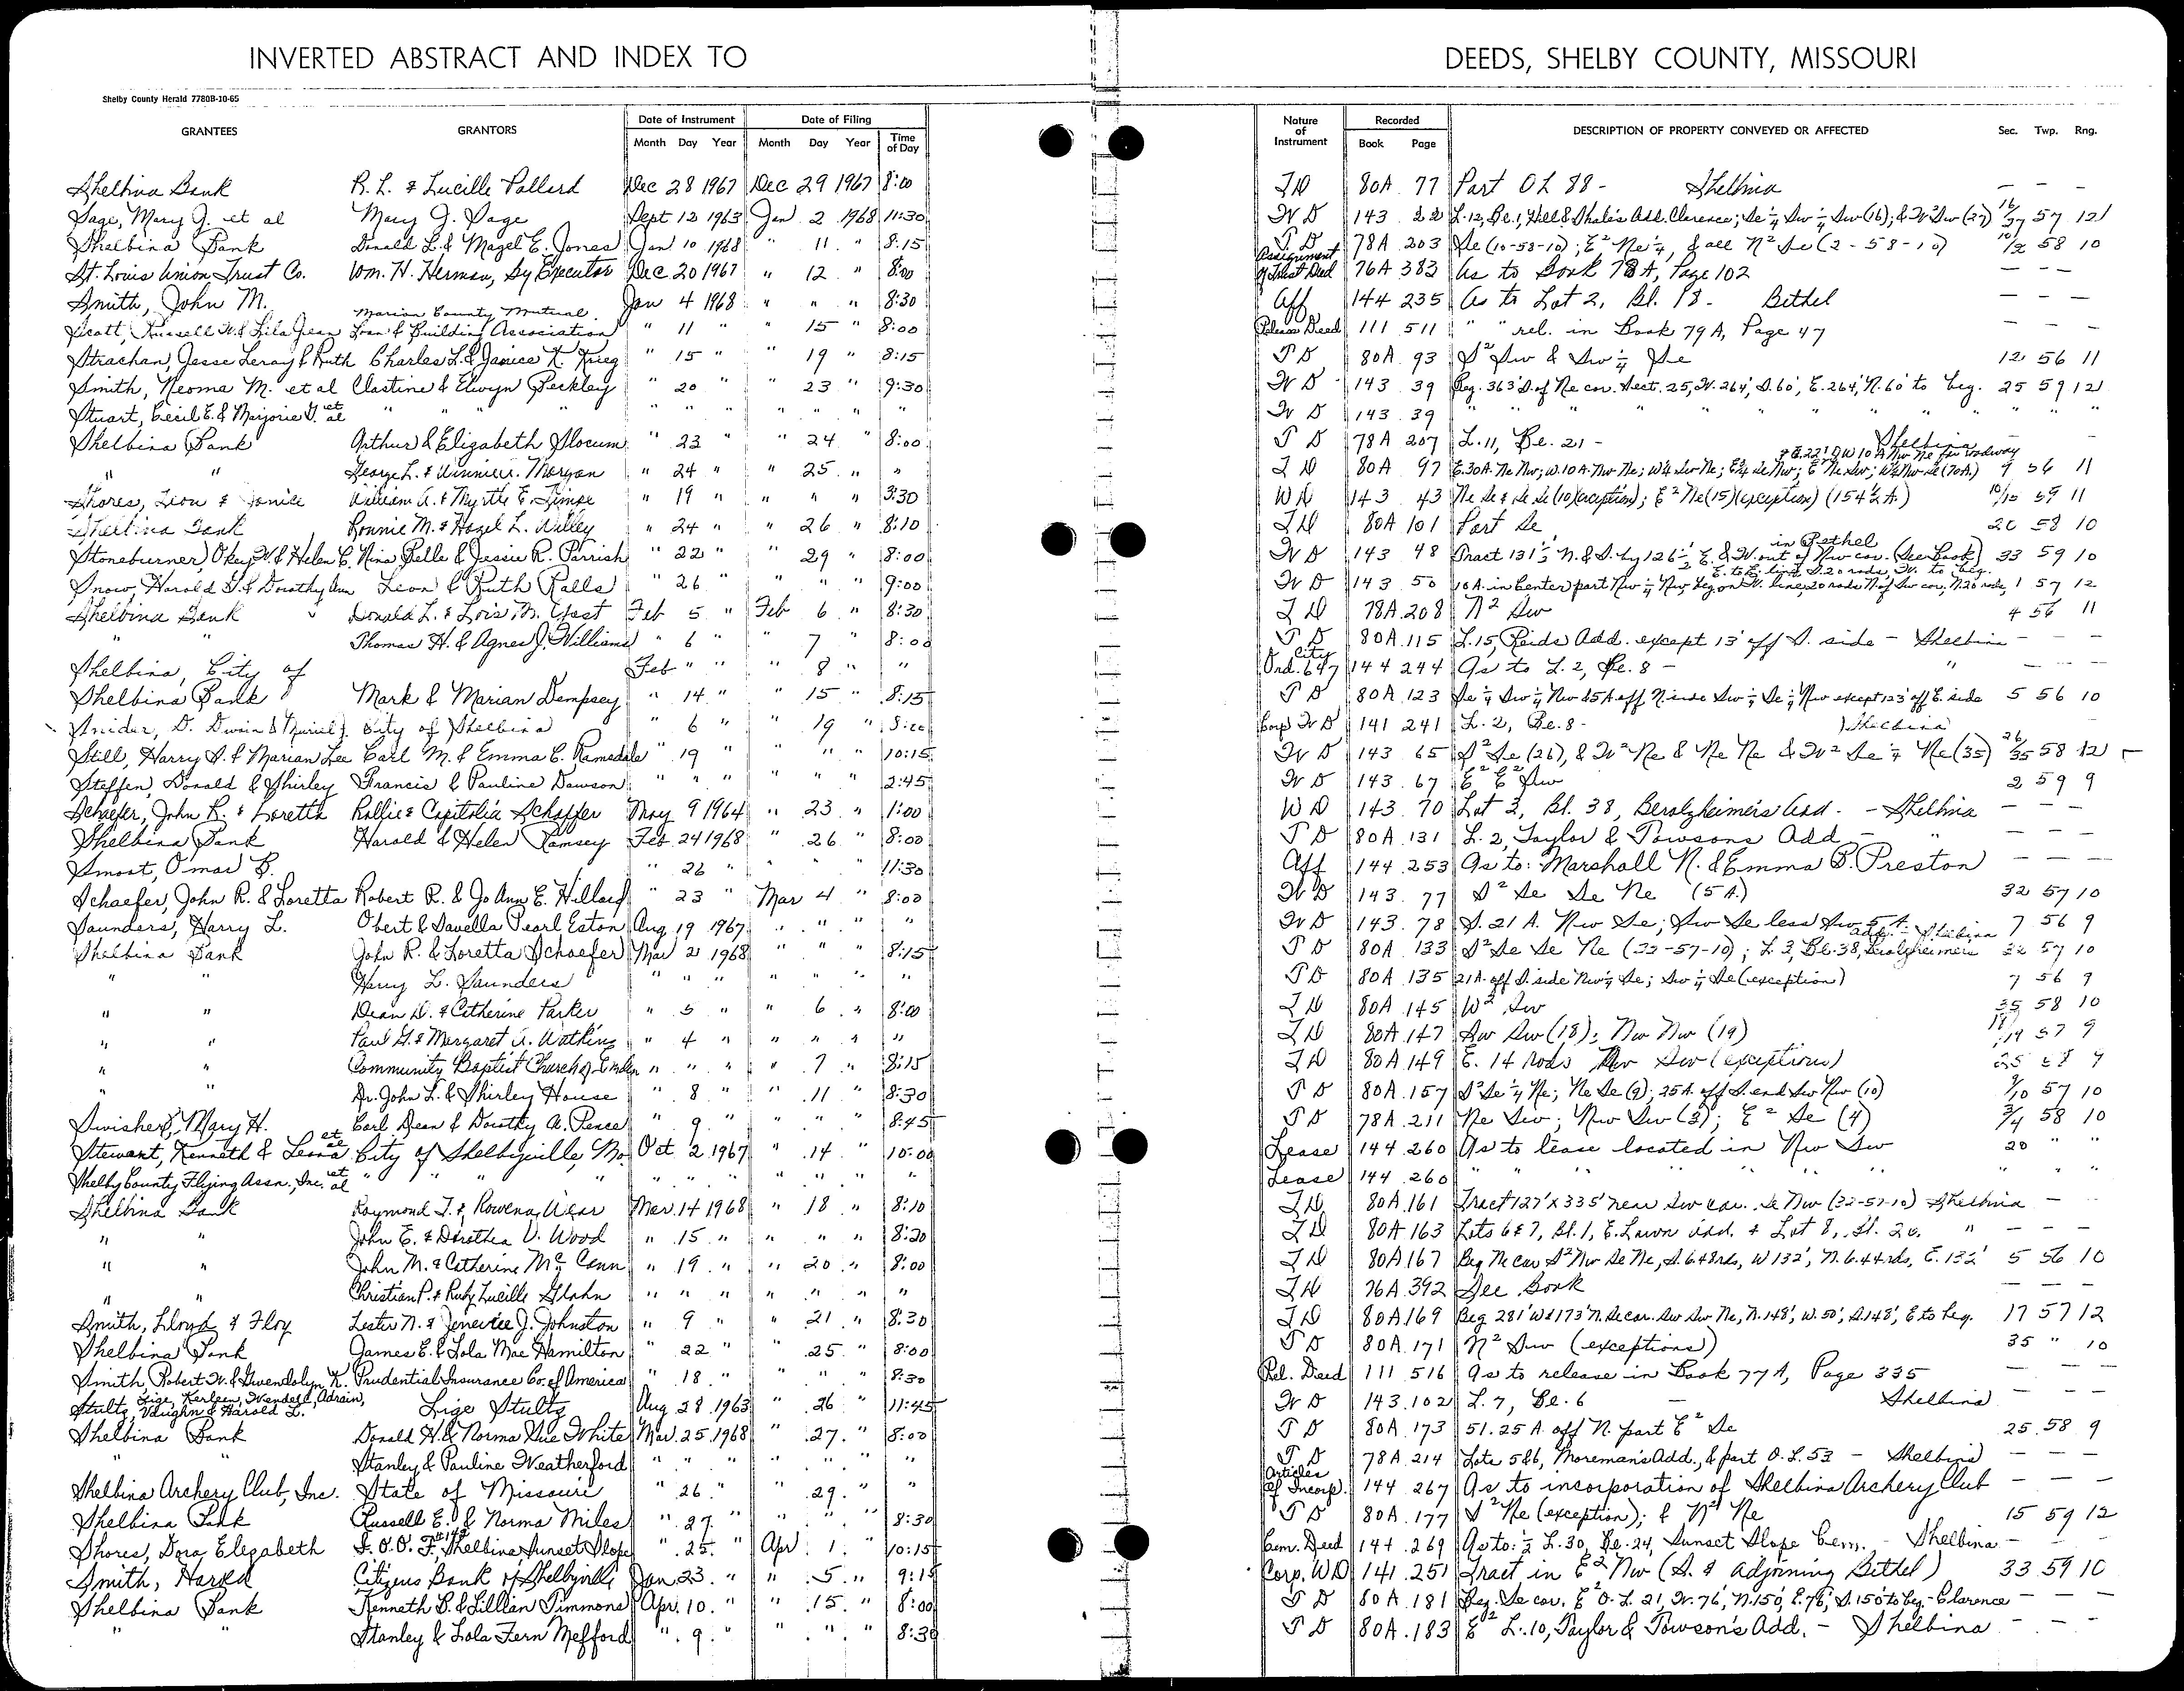 INVERTED ABSTRACT AND INDEX TO DEEDS, SHELBY COUNTY, MISSOURI
Shelby County Herald 7780B-10-65
GRANTEES GRANTORS Date of Instrument Month Day Year Date of Filing Month Day Year Time of Day Nature of Instrument Recorded Book Page DESCRIPTION OF PROPERTY CONVEYED OR AFFECTED Sec. Twp. Rng.
Shelbina Bank R. L. & Lucille Pollard Dec 28 1967 Dec 29 1967 8:00 T D 80A 77 Part O L 88 - Shelbina — — —
Sage, Mary J. et al Mary J. Sage Sept 12 1963 Jan 2 1968 11:30 W D 143 22 L.12, Bl.1, Hill & Shale's Add. Clarence; Se 1/4 Sw 1/4 Sw (16); & W² Sw (27) 16/27 57 12
Shelbina Bank Donald L. & Mazel E. Jones Jan 10 1968 " 11 " 8:15 T D 78A 203 Se (10-58-10); E² Ne 1/4, & all N² Se (2-58-10) 10/2 58 10
St. Louis Union Trust Co. Wm. H. Herman, by Executor Dec 20 1967 " 12 " 8:00 Assignment of Trust Deed 76A 383 As to Book 78A, Page 102 — — —
Smith, John M. Jan 4 1968 " " " 8:30 Aff 144 235 As to Lot 2, Bl. 18 - Bethel — — —
Scott, Russell W. & Lila Jean Marion County Mutual Loan & Building Association " 11 " " 15 " 8:00 Release Deed 111 511 " " rel. in Book 79A, Page 47 — — —
Strachan, Jesse Leroy & Ruth Charles L. & Janice K. Krieg " 15 " " 19 " 8:15 T D 80A 93 S² Sw & Sw 1/4 Se 12 56 11
Smith, Neoma M. et al Clastine & Elwyn Peckley " 20 " " 23 " 9:30 W D 143 39 Beg. 363' S. of Ne cor. Sect. 25, W. 264', S. 60', E. 264', N. 60' to beg. 25 59 12
Stuart, Cecil E. & Marjorie G. et al " " " " " " " " " W D 143 39 " " " " " " " " "
Shelbina Bank Arthur & Elizabeth Slocum " 23 " " 24 " 8:00 T D 78A 207 L. 11, Bl. 21 - Shelbina —
" " George L. & Winnie Morgan " 24 " " 25 " " T D 80A 97 E.30A. Ne Nw; W.10A. Nw Ne; Ne Sw; 9 56 11
Shores, Leon & Janice William A. & Myrtle E. Timpe " 19 " " " " 3:30 W D 143 43 Ne Se & Se Se (10)(exception); E² Ne (15)(exception) (154½ A.) 10/15 59 11
Shelbina Bank Ronnie M. & Hazel L. Willey " 24 " " 26 " 8:10 T D 80A 101 Part Se 20 58 10
Stoneburner, Okey W. & Helen C. Nina Belle & Jessie R. Parrish " 22 " " 29 " 8:00 W D 143 48 Tract 131½' N. & S. by 126½' E. & W. out of Nw cor. (See Book) in Bethel 33 59 10
Snow, Harold G. & Dorothy Ann Leon & Ruth Ralls " 26 " " " 9:00 W D 143 50 10 A. in Center part Nw 1/4 Nw, beg. on W. line 20 rods N of Sw cor, N. 20 rods, E. to E. line, S. 20 rods, W. to beg. 1 57 12
Shelbina Bank Donald L. & Lois M. Yost Feb 5 " Feb 6 " 8:30 T D 78A 208 N² Sw 4 56 11
" " Thomas H. & Agnes J. Williams " 6 " 7 8:00 T D 80A 115 L. 15, Reids Add. except 13' off S. side - Shelbina — — —
Shelbina, City of Feb " " " 8 " " City Ord. 647 144 244 As to L. 2, Bl. 8 - " — — —
Shelbina Bank Mark & Marian Dempsey " 14 " " 15 " 8:15 T D 80A 123 Se 1/4 Sw 1/4 Nw & 5A off N. side Sw 1/4 Se 1/4 Nw except 123' off E. side 5 56 10
Snider, D. Dwain & Muriel J. City of Shelbina " 6 " " 19 " 8:00 Corp W D 141 241 L. 2, Bl. 8 - Shelbina
Still, Harry S. & Marian Lee Carl M. & Emma C. Ramsdale " 19 " " " " 10:15 W D 143 65 S² Se (26), & W² Ne & Ne Ne & W² Se 1/4 Ne (35) 26/35 58 12
Steffen, Donald & Shirley Francis & Pauline Dawson " " " " " " 2:45 W D 143 67 E² E² Sw 2 59 9
Schaefer, John R. & Loretta Rollie & Capitolia Schaffer May 9 1964 " 23 " 1:00 W D 143 70 Lot 3, Bl. 38, Berolzheimer's Add - - Shelbina — — —
Shelbina Bank Harold & Helen Ramsey Feb 24 1968 " 26 " 8:00 T D 80A 131 L. 2, Taylor & Towsons Add - " — — —
Smoot, Omar B. " 26 " " " 11:30 Aff 144 253 As to: Marshall N. & Emma B. Preston — — —
Schaefer, John R. & Loretta Robert R. & Jo Ann E. Hillard " 23 " Mar 4 " 8:00 W D 143 77 S² Se Se Ne (5 A.) 32 57 10
Saunders, Harry L. Obert & Davella Pearl Eston Aug 19 1967 " " " " W D 143 78 S. 21 A. Nw Se; Sw Se less Sw 5 A. 7 56 9
Shelbina Bank John R. & Loretta Schaefer Mar 2 1968 " " " 8:15 T D 80A 133 S² Se Se Ne (32-57-10); L. 3, Bl. 38, Berolzheimers Add. - Shelbina 32 57 10
" " Harry L. Saunders " " " " " " " T D 80A 135 21A. off S. side Nw 1/4 Se; Sw 1/4 Se (exception) 7 56 9
" " Dean D. & Catherine Parker " 5 " " 6 " 8:00 T D 80A 145 W² Sw 35 58 10
" " Paul G. & Margaret A. Watkins " 4 " " " " " T D 80A 147 Sw Sw (18); Nw Nw (19) 18/19 57 9
" " Community Baptist Church of Emden " " " " 7 " 8:15 T D 80A 149 E. 14 rods Nw Sw (exceptions) 25 58 9
" " Dr. John L. & Shirley House " 8 " " 11 " 8:30 T D 80A 157 S² Se 1/4 Ne; Ne Se (9); 25A. off S. end Sw Nw (10) 9/10 57 10
Swisher, Mary H. Earl Dean & Dorothy A. Pence " 9 " " " " 8:45 T D 78A 211 Ne Sw; Nw Sw (3); E² Se (4) 3/4 58 10
Stewart, Kenneth & Leona et al City of Shelbyville, Mo. Oct 2 1967 " 14 " 10:00 Lease 144 260 As to lease located in Nw Sw 20 " "
Shelby County Flying Assn., Inc. et al " " " " " " " " " " Lease 144 260 " " " " " " " "
Shelbina Bank Raymond T. & Rowena Wear Mar. 14 1968 " 18 " 8:10 T D 80A 161 Tract 127' X 335' near Sw cor. Se Nw (32-57-10) Shelbina —
" " John E. & Dorothea V. Wood " 15 " " " " 8:20 T D 80A 163 Lots 6 & 7, Bl. 1, E. Lawn Add. & Lot 8, Bl. 20, " — — —
" " John M. & Catherine McCann " 19 " " 20 " 8:00 T D 80A 167 Beg Ne cor, S² Nw Se Ne, S. 6.48rds, W 132', N. 6.44rds, E. 132' 5 56 10
" " Christian P. & Ruby Lucille Glahn " " " " " " " T D 76A 392 See Book — — —
Smith, Lloyd & Floy Lester N. & Jenevice J. Johnston " 9 " " 21 " 8:30 T D 80A 169 Beg 281' W & 173' N. Se cor. Sw Sw Ne, N. 148', W. 50', S. 148', E to beg. 17 57 12
Shelbina Bank James E. & Lola Mae Hamilton " 22 " " 25 " 8:00 T D 80A 171 N² Sw (exceptions) 35 " 10
Smith, Robert W. & Gwendolyn K. Prudential Insurance Co. of America " 18 " " " " 8:30 Rel. Deed 111 516 As to release in Book 77A, Page 335 — — —
Stultz, Lige, Karleen, Wendell, Adrain, Vaughn & Harold L. Lige Stultz Aug 28 1963 " 26 " 11:45 W D 143 102 L. 7, Bl. 6 — Shelbina — — —
Shelbina Bank Donald H. & Norma Sue White Mar. 25 1968 " 27 " 8:00 T D 80A 173 51.25 A. off N. part E² Se 25 58 9
" " Stanley & Pauline Weatherford " " " " " " " T D 78A 214 Lots 5&6, Moreman's Add., & part O. L. 53 - Shelbina — — —
Shelbina Archery Club, Inc. State of Missouri " 26 " " 29 " " Articles of Incorp. 144 267 As to incorporation of Shelbina Archery Club — — —
Shelbina Bank Russell E. & Norma Miles " 27 " " " " 8:30 T D 80A 177 S² Ne (exception); & N² Ne 15 59 12
Shores, Dora Elizabeth I. O. O. F. Shelbina Sunset Slope " 25 " Apr 1 " 10:15 Cem. Deed 144 269 As to: ½ L. 30, Bl. 24, Sunset Slope Cem. - Shelbina — — —
Smith, Harold Citizens Bank of Shelbyville Jan 23 " " 5 " 9:15 Corp. W D 141 251 Tract in E² Nw (S. & adjoining Bethel) 33 59 10
Shelbina Bank Kenneth B. & Lillian Timmons Apr. 10 " " 15 " 8:00 T D 80A 181 Beg. Se cor. E² O. L. 21, W. 76', N. 150', E. 76', S. 150' to beg. - Clarence — — —
" " Stanley & Lola Fern Mefford " 9 " " " " 8:30 T D 80A 183 E² L. 10, Taylor & Towson's Add. - Shelbina — —